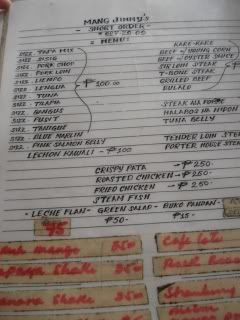 MANG JIMMY'S
SHORT ORDER
= MENU =
SIZZ. TAPA MIX
SIZZ. SISIG
SIZZ. PORK CHOP
SIZZ. PORK LOIN
SIZZ. LIEMPO
SIZZ. LENGUA
SIZZ. TUNA
SIZZ. TILAPIA
SIZZ. BANGUS
SIZZ. PUSIT
SIZZ. TANIGUE
SIZZ. BLUE MARLIN
SIZZ. PINK SALMON BELLY
₱100.00
LECHON KAWALI - ₱100
KARE-KARE
BEEF W/ YOUNG CORN
BEEF W/ OYSTER SAUCE
SIRLOIN STEAK
T-BONE STEAK
GRILLED BEEF
BULALO
STEAK
MALABOS NA HIPON
TUNA BELLY
TENDER LOIN
PORTER HOUSE
CRISPY PATA - ₱250.
ROASTED CHICKEN - ₱250.
FRIED CHICKEN - ₱250.
STEAM FISH
-LECHE FLAN- GREEN SALAD- BUKO PANDAN-
45 ₱50- ₱35-
mango 250
Shake 250
Shake 250
Cafe
Strawberry